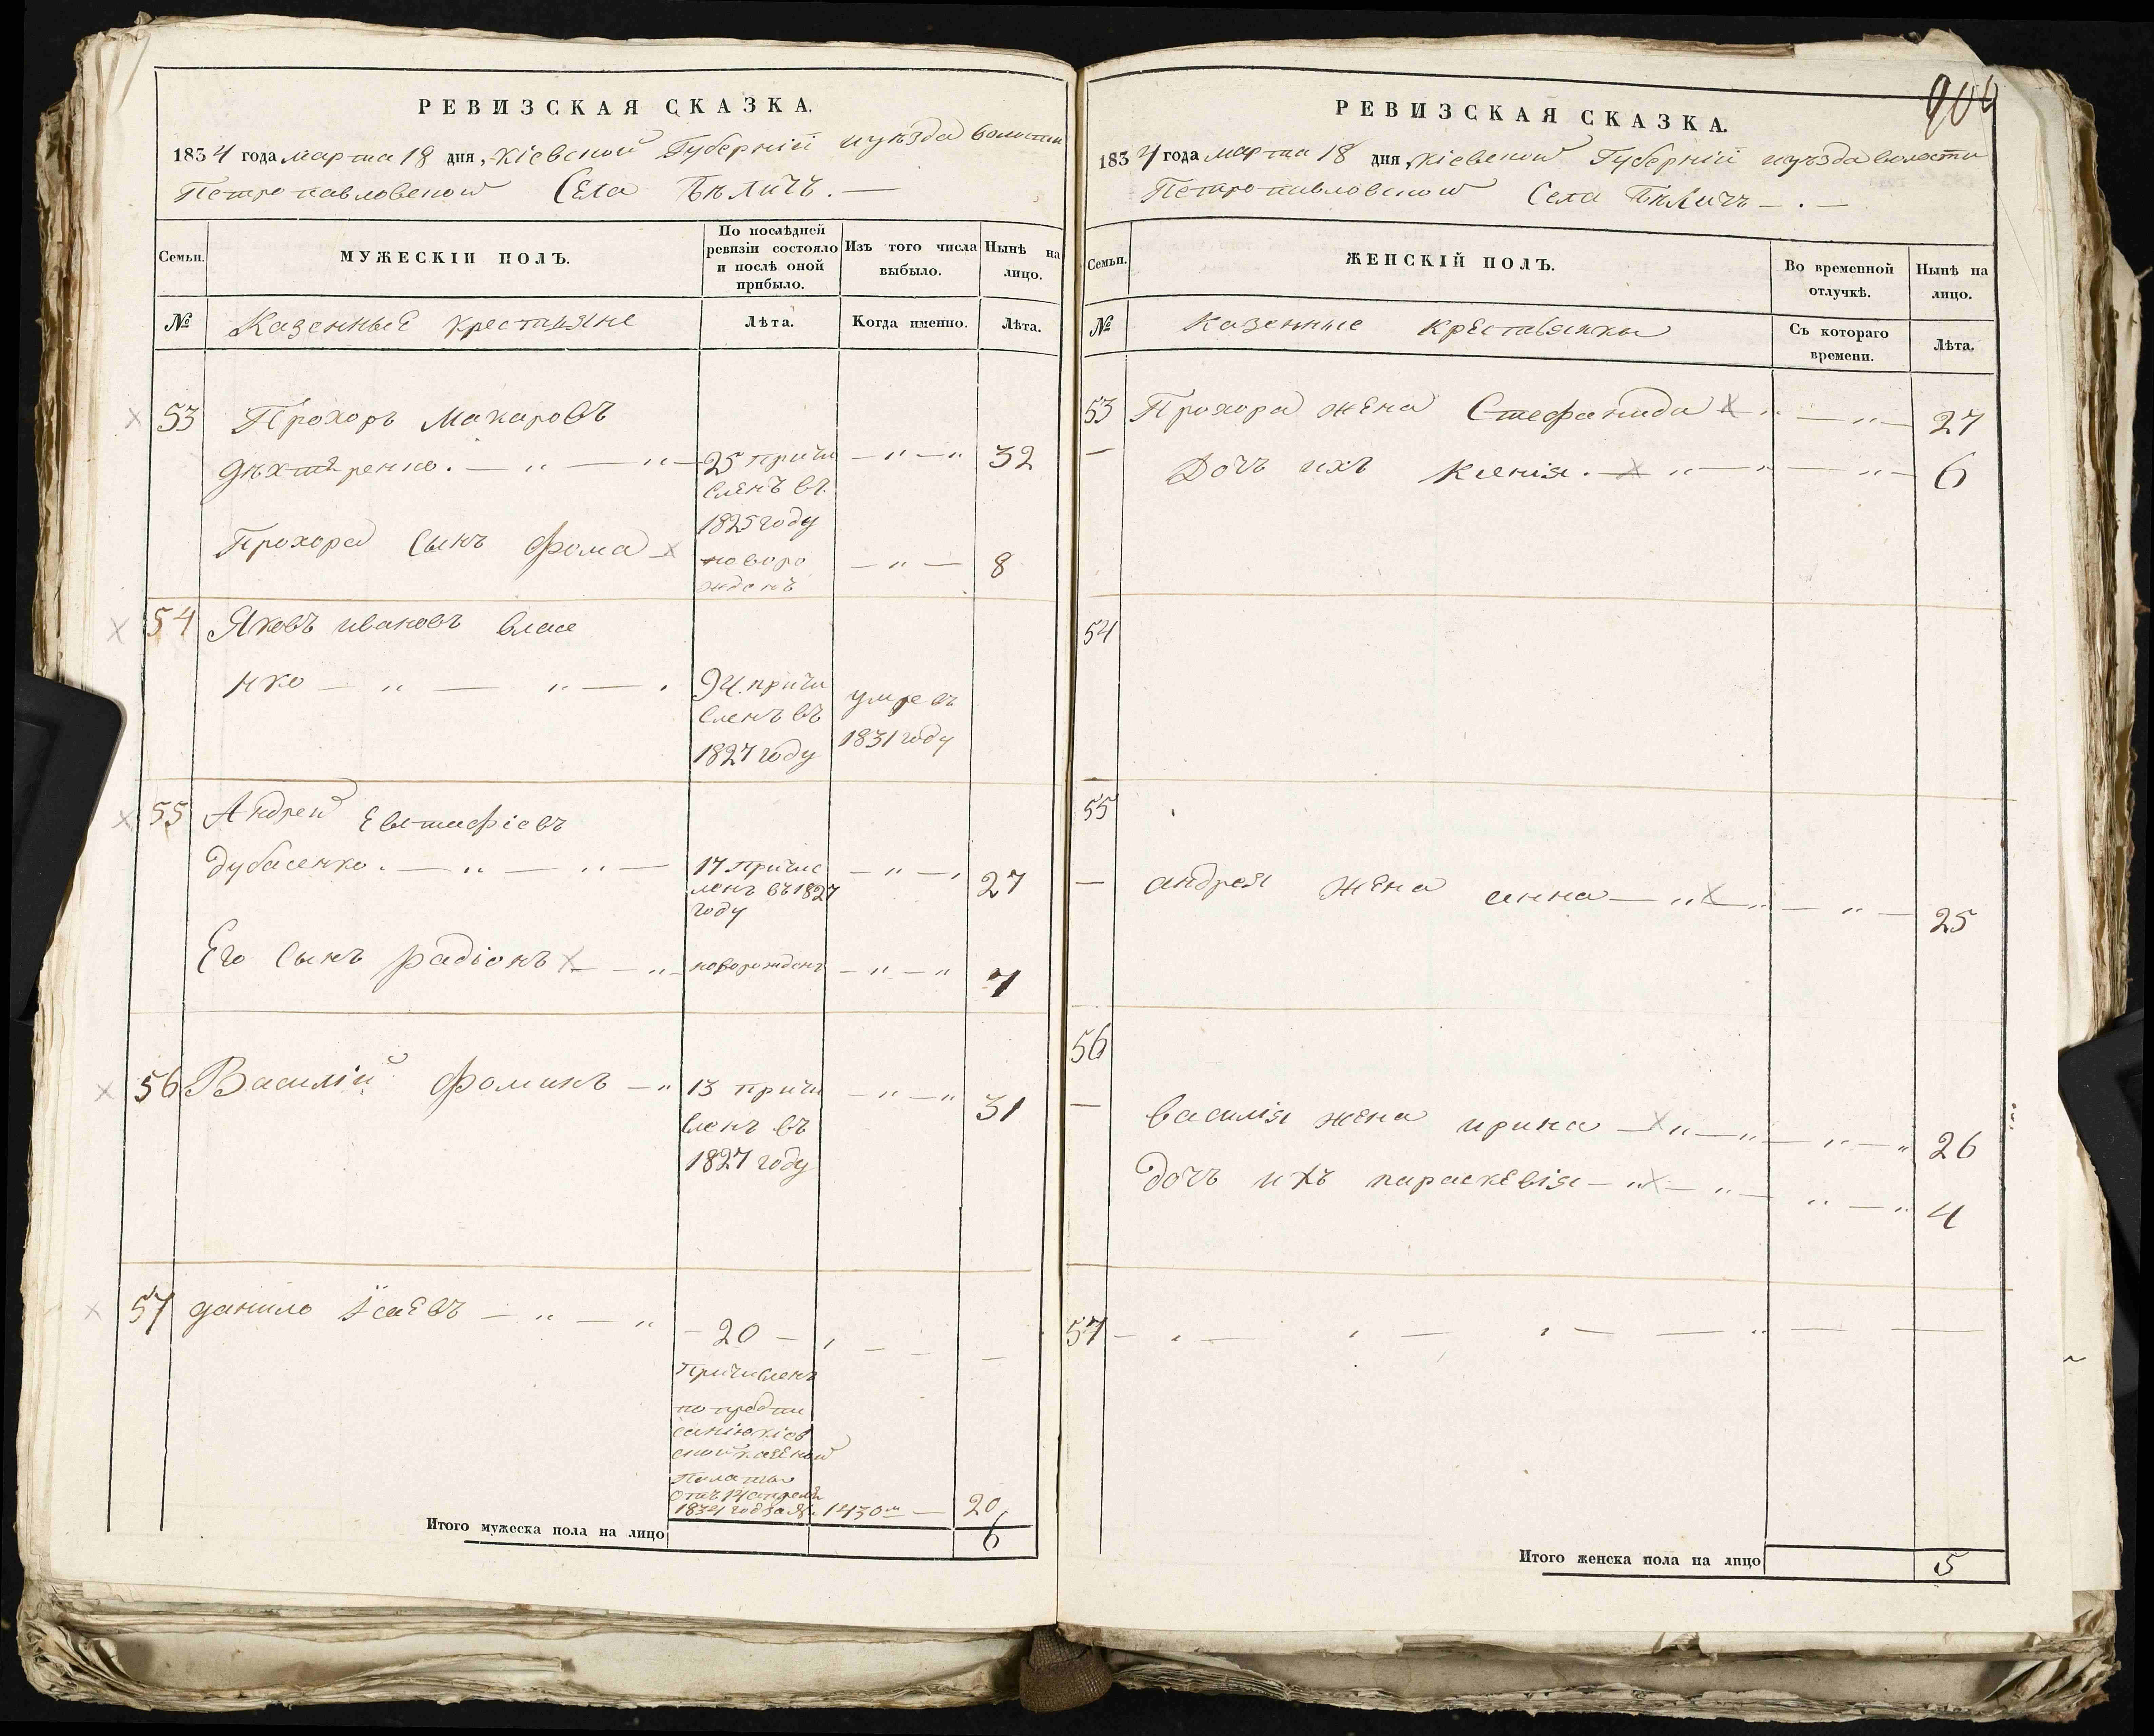 РЕВИЗСКАЯ СКАЗКА.
1834 года марта 18 дня, Кіевской Губерніи и уѣзда волости
Петропавловской Села Бѣличъ. —
Семьи.
МУЖЕСКІЙ ПОЛЪ.
По послѣдней ревизіи состояло и послѣ оной прибыло.
Изъ того числа выбыло.
Нынѣ на лицо.
№
Казенные крестьяне
Лѣта.
Когда именно.
Лѣта.
53 Прохоръ Макаровъ
Дѣхтяренко. — „ — „ — 25 причи — „ — „ 32
сленъ въ
1825 году
Прохора сынъ Фома — новоро — „ — 8
жденъ
54 Яковъ ивановъ власе
нко — „ — „ — . 94 причи умре въ
сленъ въ 1831 году
1827 году
55 Андрей Евстафіевъ
Дубасенко. — „ — „ — 17 Причис — „ — „ 27
ленъ въ 1827
году
Его сынъ радіонъ — „ — новорожденъ — „ — „ 7
56 Василій Фоминъ — „ 13 причи — „ — „ 31
сленъ въ
1827 году
57 данило Ісаевъ — „ — „ — 20 —
Причисленъ
по предпи
санію кіев
ской казеной
Палаты
отъ 14 апреля
1834 года за № 1430м — 20
Итого мужеска пола на лицо 6
906
РЕВИЗСКАЯ СКАЗКА.
1834 года марта 18 дня, Кіевской Губерніи и уѣзда волости
Петропавловской Села Бѣличъ — . —
Семьи.
ЖЕНСКІЙ ПОЛЪ.
Во временной отлучкѣ.
Нынѣ на лицо.
№
Казенные крестьянки
Съ котораго времени.
Лѣта.
53 Прохора жена Стефанида „ — „ — 27
— Дочь ихъ Ксенія. — „ — „ — „ — 6
54
—
55
— андрея жена анна — „ — „ — „ — 25
56
— василія жена ирина — „ — „ — „ — „ 26
дочь ихъ параскевія — „ — „ — „ — „ 4
57 — „ — „ — „ — — „ — —
Итого женска пола на лицо 5